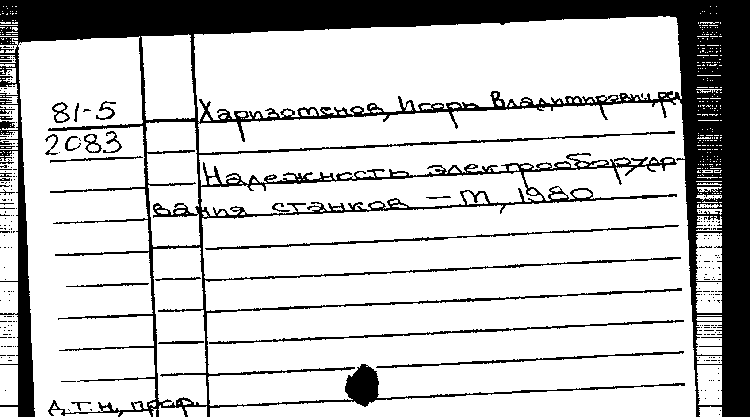 81-5
2083
Харизоменов, Игорь Владимирович, рец
Надежность электрооборудо-
вания станков — М, 1980
д.т.н., проф.